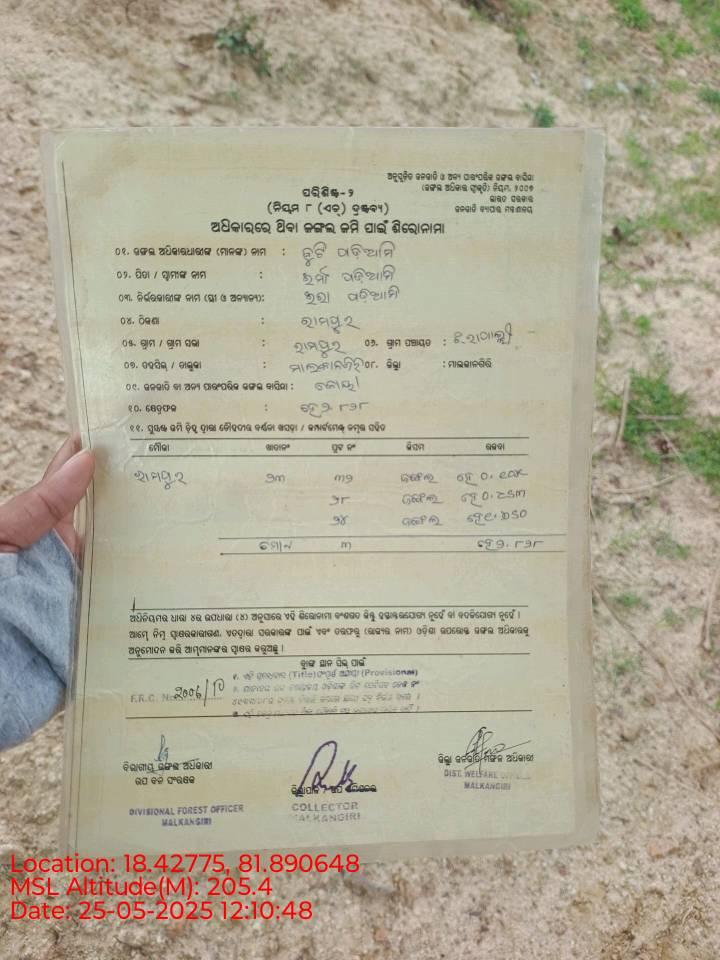 ଅନୁସୂଚିତ ଜନଜାତି ଓ ଅନ୍ୟ ପାରଂପରିକ ଜଙ୍ଗଲ ବାସିନ୍ଦା
(ଜଙ୍ଗଲ ଅଧିକାର ସ୍ୱୀକୃତି) ନିୟମ, ୨୦୦୭
ଭାରତ ସରକାର
ଜନଜାତି ବ୍ୟାପାର ମନ୍ତ୍ରଣାଳୟ
ପରିଶିଷ୍ଟ-୨
(ନିୟମ ୮ (ଏଚ୍) ଦ୍ରଷ୍ଟବ୍ୟ)
ଅଧିକାରରେ ଥିବା ଜଙ୍ଗଲ ଜମି ପାଇଁ ଶିରୋନାମା
୦୧. ଜଙ୍ଗଲ ଅଧିକାରଧାରୀଙ୍କ (ମାନଙ୍କ) ନାମ : ପଡ଼ିଆମି
୦୨. ପିତା / ସ୍ୱାମୀଙ୍କ ନାମ : ଇର୍ମା ପଡ଼ିଆମି
୦୩. ନିର୍ଭରକାରୀଙ୍କ ନାମ (ସ୍ତ୍ରୀ ଓ ଅନ୍ୟାନ୍ୟ): ପଡ଼ିଆମି
୦୪. ଠିକଣା : ରାମପୁର
୦୫. ଗ୍ରାମ / ଗ୍ରାମ ସଭା : ରାମପୁର ୦୬. ଗ୍ରାମ ପଞ୍ଚାୟତ :
୦୭. ତହସିଲ / ତାଲୁକା : ମାଲକାନଗିରି ୦୮. ଜିଲ୍ଲା : ମାଲକାନଗିରି
୦୯. ଜନଜାତି ବା ଅନ୍ୟ ପାରଂପରିକ ଜଙ୍ଗଲ ବାସିନ୍ଦା : କୋୟା
୧୦. କ୍ଷେତ୍ରଫଳ : ହେ ୨.୮୨୮
୧୧. ସୁସ୍ପଷ୍ଟ ଜମି ଚିହ୍ନ ଦ୍ୱାରା ଚୌହଦୀର ବର୍ଣ୍ଣନା ଖସଡ଼ା / କମ୍ପାର୍ଟମେଣ୍ଟ ନମ୍ବର ସହିତ
ମୌଜା ଖାତାନଂ ପ୍ଲଟ ନଂ କିସମ ରକବା
ରାମପୁର ୨୩ ୩୨ ଜଙ୍ଗଲ ହେ ୦.
୨୮ ଜଙ୍ଗଲ ହେ ୦.
୨୪ ଜଙ୍ଗଲ
ମୋଟ ୩ ହେ ୨.୮୨୮
ଅଧିନିୟମର ଧାରା ୪ର ଉପଧାରା (୪) ଅନୁସାରେ ଏହି ଶିରୋନାମା ବଂଶଗତ କିନ୍ତୁ ହସ୍ତାନ୍ତରଯୋଗ୍ୟ ନୁହେଁ ବା ବଦଳିଯୋଗ୍ୟ ନୁହେଁ ।
ଆମ୍ଭେ ନିମ୍ନ ସ୍ୱାକ୍ଷରକାରୀଗଣ, ଏତଦ୍ୱାରା ସରକାରଙ୍କ ପାଇଁ ଏବଂ ତରଫରୁ (ରାଜ୍ୟର ନାମ) ଓଡ଼ିଶା ଉପରୋକ୍ତ ଜଙ୍ଗଲ ଅଧିକାରକୁ
ଅନୁମୋଦନ କରି ଆମ୍ଭମାନଙ୍କର ସ୍ୱାକ୍ଷର କରୁଅଛୁ ।
ବ୍ଲାଙ୍କ ସ୍ଥାନ ସିଲ୍ ପାଇଁ
(Title) (Provisional)
F.R.C. No. 2006/10
ବିଭାଗୀୟ ଜଙ୍ଗଲ ଅଧିକାରୀ
ଉପ ବନ ସଂରକ୍ଷକ
DIVISIONAL FOREST OFFICER
MALKANGIRI
COLLECTOR
MALKANGIRI
ଜିଲ୍ଲା ଜନଜାତି ମଙ୍ଗଳ ଅଧିକାରୀ
DIST. WELFARE
MALKANGIRI
Location: 18.42775, 81.890648
MSL Altitude(M): 205.4
Date: 25-05-2025 12:10:48